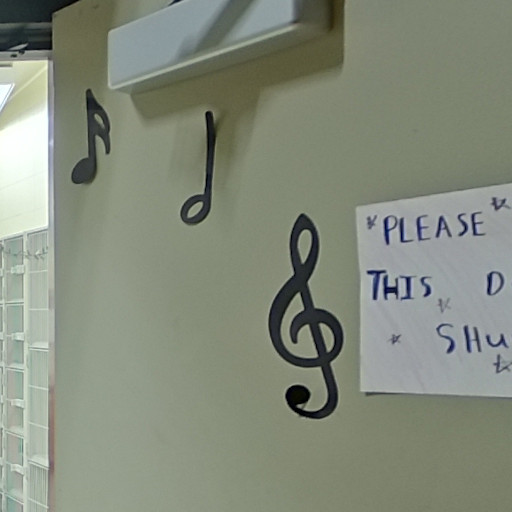 *PLEASE*
THIS D
* SHU